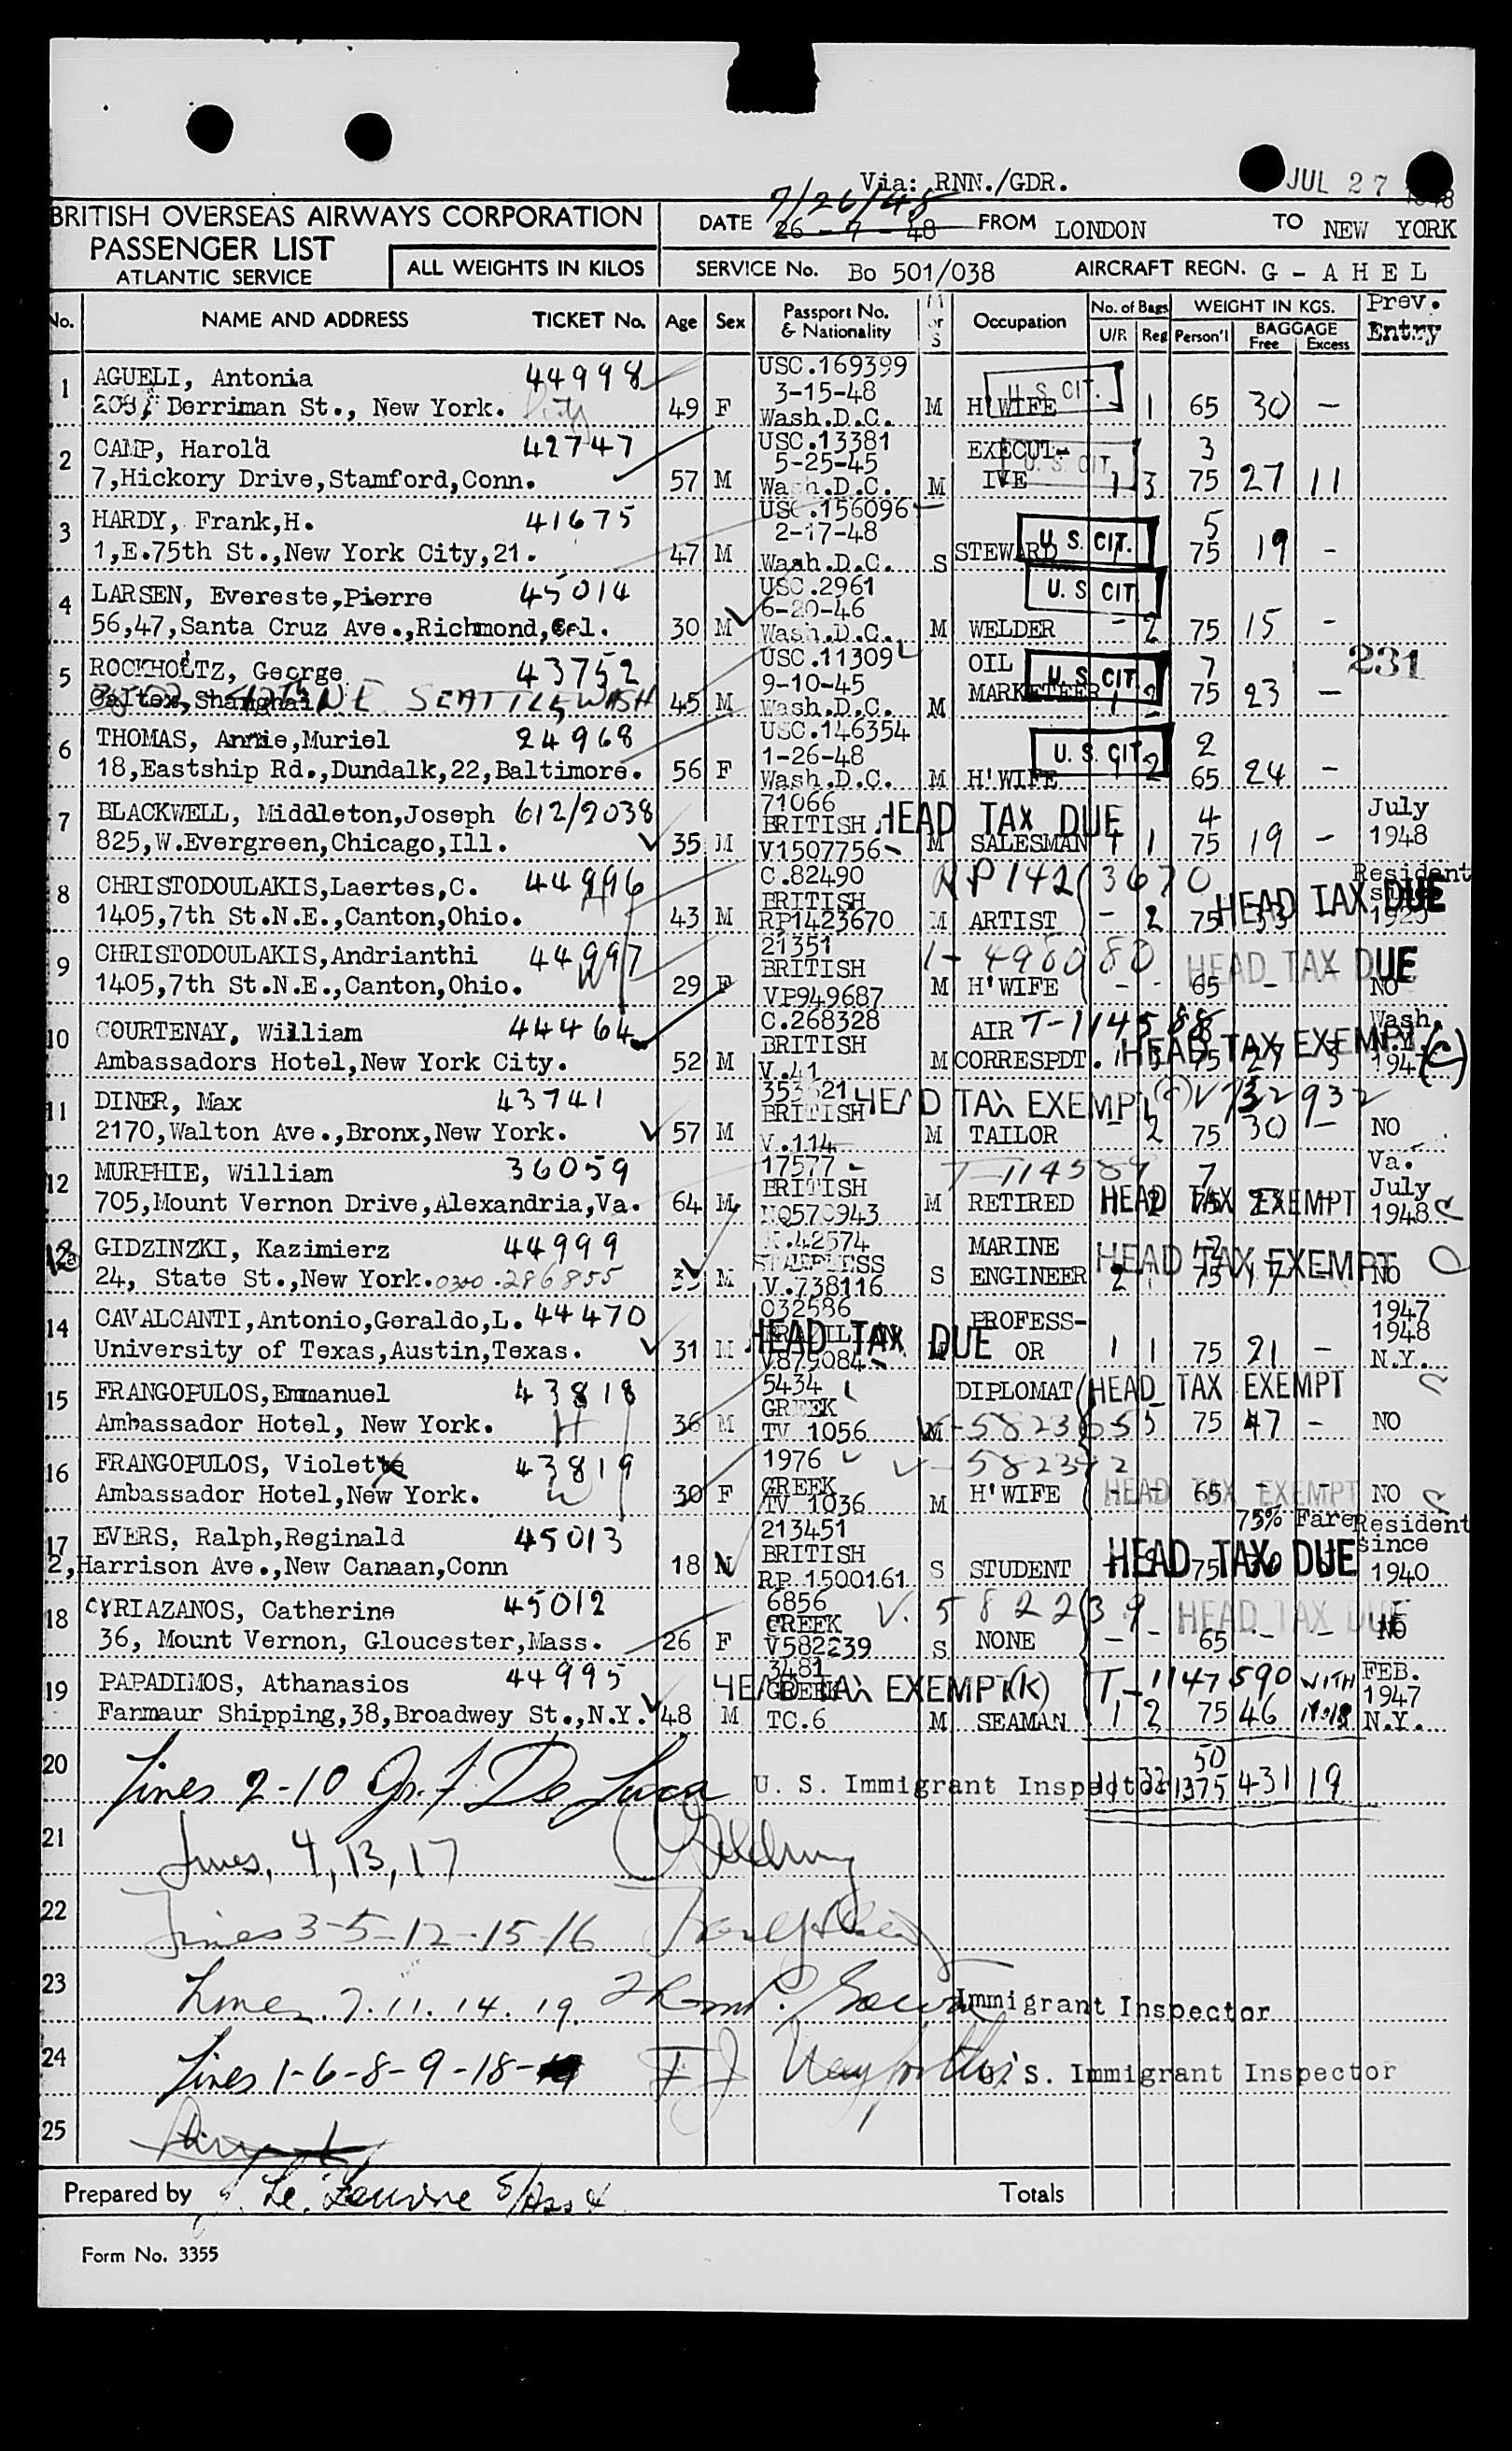 Via: RNN./GDR.
JUL 27 1948
BRITISH OVERSEAS AIRWAYS CORPORATION
PASSENGER LIST
ATLANTIC SERVICE
ALL WEIGHTS IN KILOS
DATE 7/26/48 26 - 7 - 48 FROM LONDON TO NEW YORK
SERVICE No. Bo 501/038 AIRCRAFT REGN. G - A H E L
No. NAME AND ADDRESS TICKET No. Age Sex Passport No. & Nationality M or S Occupation No. of Bags U/P. Reg WEIGHT IN KGS. Person'l BAGGAGE Free Excess Prev. Entry
1 AGUELI, Antonia 44998 USC.169399
3-15-48 U. S. CIT.
Derriman St., New York. 49 F Wash.D.C. M H'WIFE - 1 65 30 -
2 CAMP, Harold 42747 USC.13381 EXECUT- 3
5-25-45 U. S. CIT.
7,Hickory Drive,Stamford,Conn. 57 M Wash.D.C. M IVE 1 3 75 27 11
3 HARDY, Frank,H. 41675 USC.156096 5
2-17-48 U. S. CIT.
1,E.75th St.,New York City,21. 47 M Wash.D.C. S STEWARD 1 75 19 -
4 LARSEN, Evereste,Pierre 45014 USC.2961
6-20-46 U. S. CIT.
56,47,Santa Cruz Ave.,Richmond,Cal. 30 M Wash.D.C. M WELDER - 2 75 15 -
5 ROCKHOLTZ, George 43752 USC.11309 OIL 7 231
9-10-45 U. S. CIT.
Caltex,Shanghai N.E. SEATTLE WASH 45 M Wash.D.C. M MARKETEER 1 2 75 23 -
6 THOMAS, Annie,Muriel 24968 USC.146354 2
1-26-48 U. S. CIT.
18,Eastship Rd.,Dundalk,22,Baltimore. 56 F Wash.D.C. M H'WIFE 1 2 65 24 -
7 BLACKWELL, Middleton,Joseph 612/2038 71066 4 July
BRITISH HEAD TAX DUE
825,W.Evergreen,Chicago,Ill. 35 M V1507756 M SALESMAN 1 1 75 19 - 1948
8 CHRISTODOULAKIS,Laertes,C. 44996 C.82490 RP1423670 Resident
BRITISH HEAD TAX DUE
1405,7th St.N.E.,Canton,Ohio. 43 M RP1423670 M ARTIST - 2 75 33 -
9 CHRISTODOULAKIS,Andrianthi 44997 21351 1-498080
BRITISH HEAD TAX DUE
1405,7th St.N.E.,Canton,Ohio. 29 F VP949687 M H'WIFE - - 65 - NO
10 COURTENAY, William 44464 C.268328 AIR T-114588 Wash.
BRITISH HEAD TAX EXEMPT (C)
Ambassadors Hotel,New York City. 52 M V.41 M CORRESPDT. 1 3 75 27 3
11 DINER, Max 43741 353621 HEAD TAX EXEMPT V732932
BRITISH
2170,Walton Ave.,Bronx,New York. 57 M V.114 M TAILOR - 2 75 30 - NO
12 MURPHIE, William 36059 17577 T-114589 7 Va.
BRITISH HEAD TAX EXEMPT July
705,Mount Vernon Drive,Alexandria,Va. 64 M NQ570943 M RETIRED 2 75 23 - 1948
GIDZINZKI, Kazimierz 44999 42574 MARINE
STATELESS HEAD TAX EXEMPT
24, State St.,New York. 0300.286855 M V.738116 S ENGINEER 2 75 17 - NO
14 CAVALCANTI,Antonio,Geraldo,L. 44470 032586 PROFESS- 1947
BRAZILIAN HEAD TAX DUE 1948
University of Texas,Austin,Texas. 31 M V879084 OR 1 1 75 21 - N.Y.
15 FRANGOPULOS,Emmanuel 43818 5434 DIPLOMAT HEAD TAX EXEMPT
H GREEK
Ambassador Hotel, New York. 36 M TV 1056 M 5 75 47 - NO
16 FRANGOPULOS, Violette 43819 1976 V-582342
W GREEK HEAD TAX EXEMPT
Ambassador Hotel,New York. 30 F TV 1036 M H'WIFE - - 65 - - NO
75% Fare Resident
17 EVERS, Ralph,Reginald 45013 213451 since
BRITISH HEAD TAX DUE
2,Harrison Ave.,New Canaan,Conn 18 M RP 1500161 S STUDENT 75 1940
18 CYRIAZANOS, Catherine 45012 6856 V. 582239
GREEK HEAD TAX DUE
36, Mount Vernon, Gloucester,Mass. 26 F V582239 S NONE - - 65 - - NO
19 PAPADIMOS, Athanasios 44995 3481 T-1147590 WITH FEB.
GREEK HEAD TAX EXEMPT (K) 1947
Fanmaur Shipping,38,Broadwey St.,N.Y. 48 M TC.6 M SEAMAN 1 2 75 46 N.Y.
20 50
Lines 2-10 De Luca U. S. Immigrant Inspector 11 32 1375 431 19
21 Lines, 4, 13, 17
22 Lines 3-5-12-15-16
23 Lines 7.11.14.19. Immigrant Inspector
24 Lines 1-6-8-9-18 U. S. Immigrant Inspector
25
Prepared by Totals
Form No. 3355